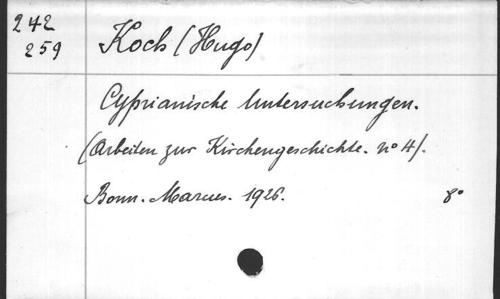 242
259
Koch (Hugo)
Cyprianische Untersuchungen.
(Arbeiten zur Kirchengeschichte. nº 4).
Bonn. Marcus. 1926. 8º